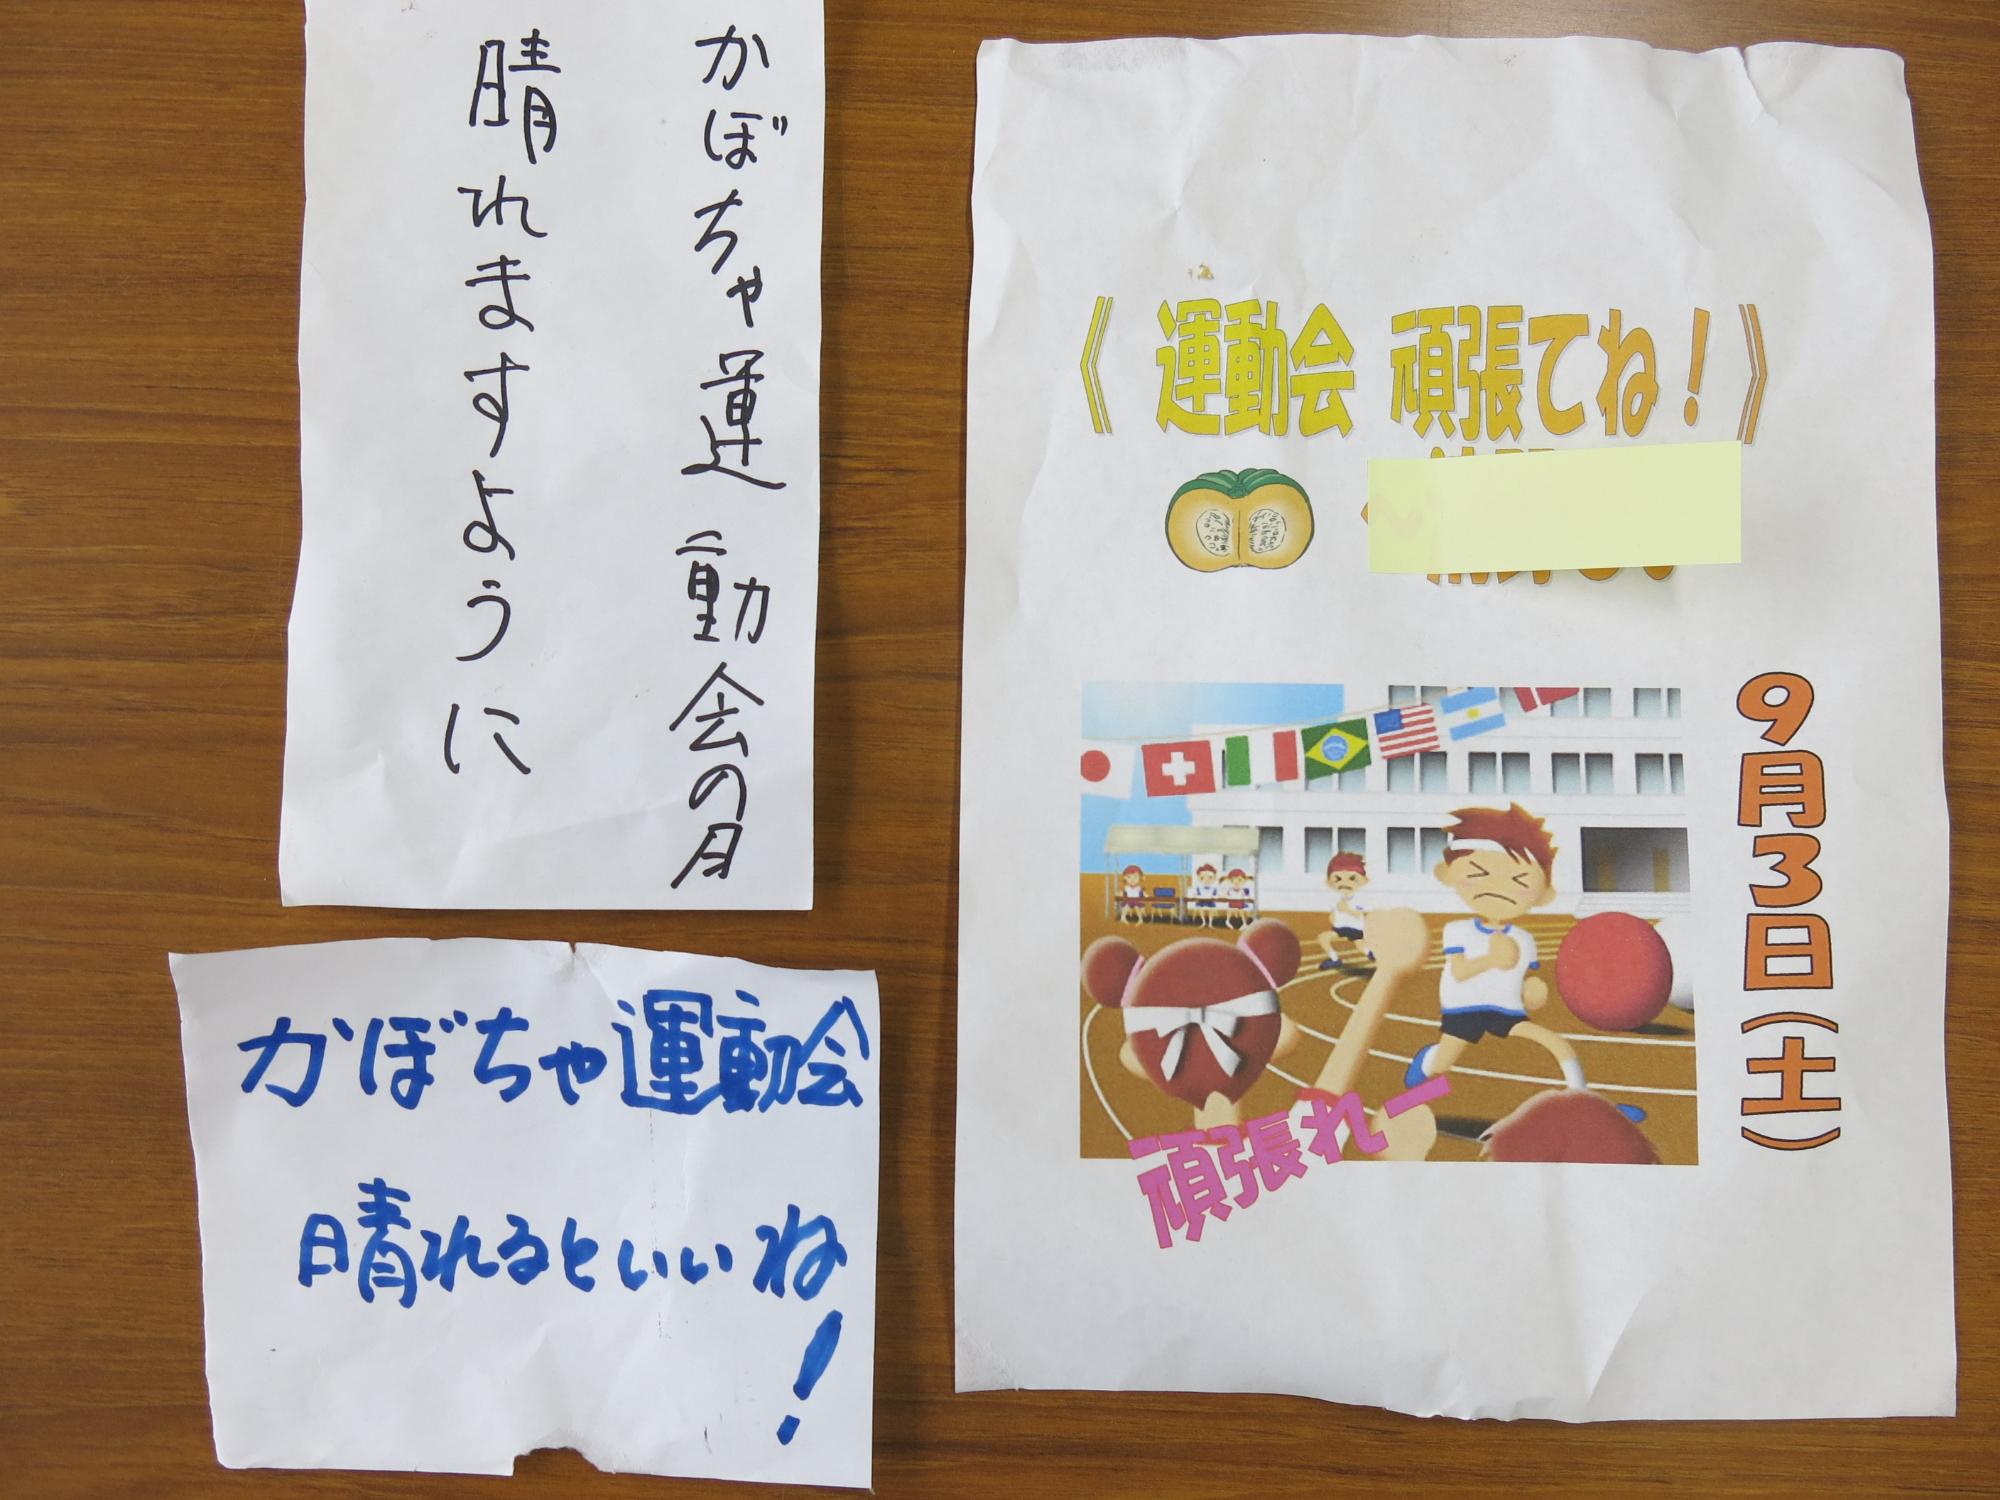 かぼちゃ運動会の日
晴れますように
かぼちゃ運動会
晴れるといいね!
《 運動会 頑張てね! 》
9月3日(土)
頑張れー